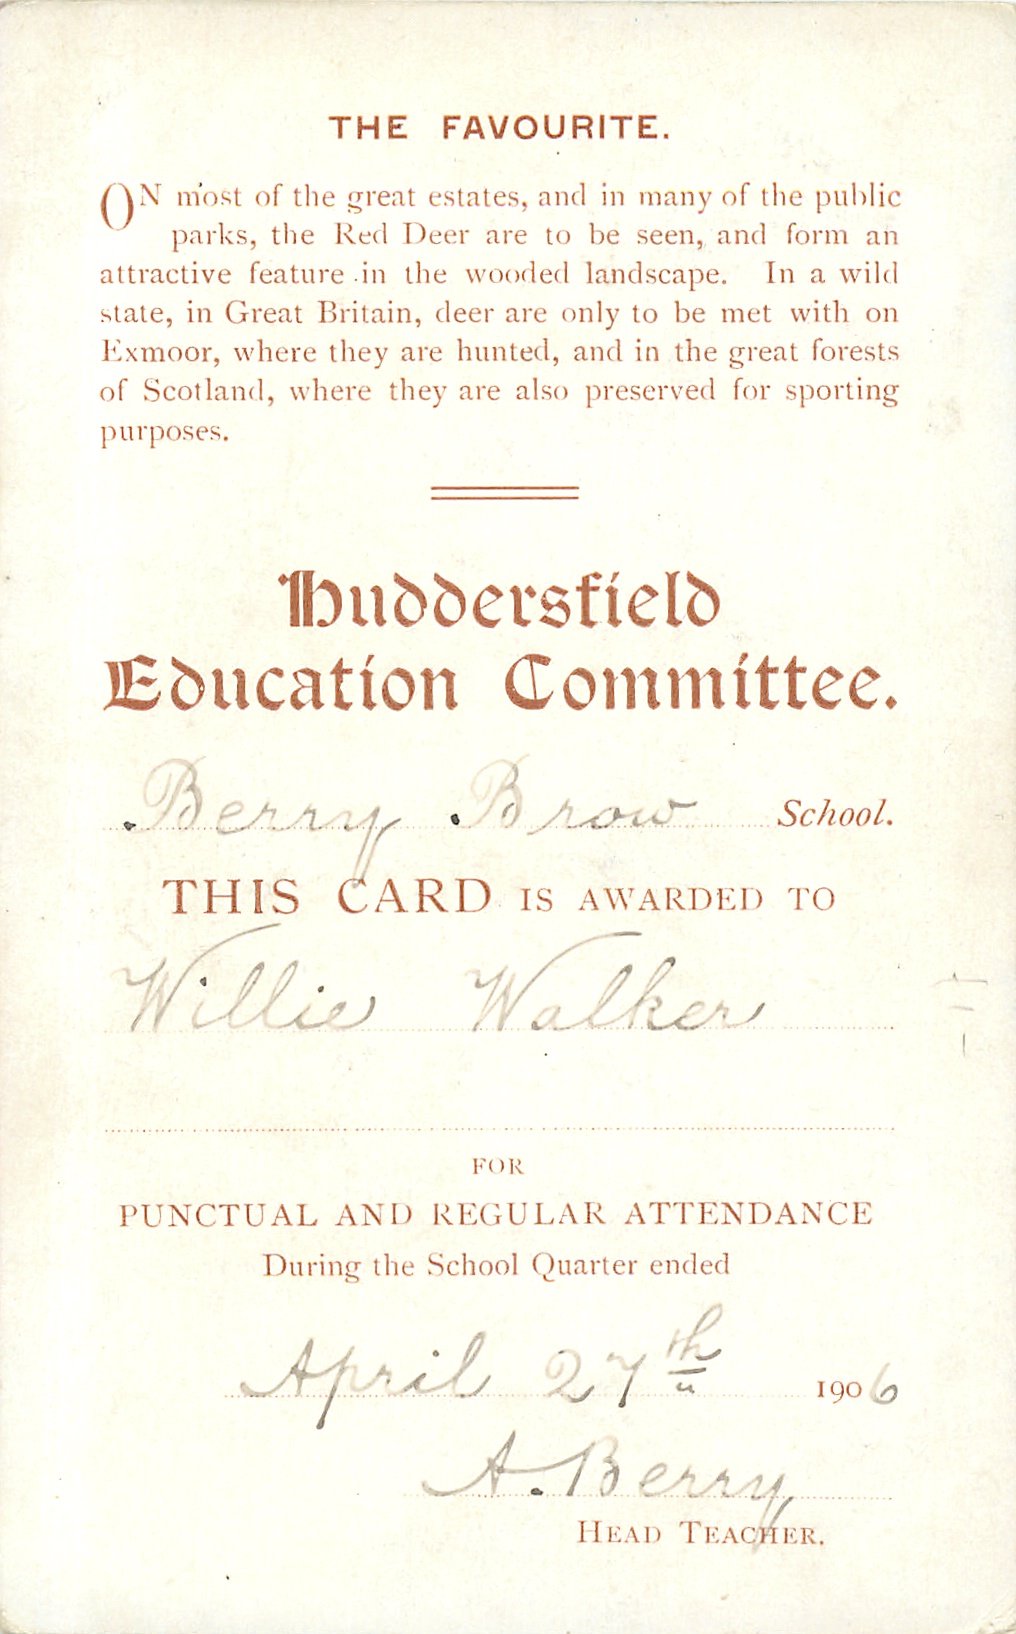 THE FAVOURITE.
ON most of the great estates, and in many of the public
parks, the Red Deer are to be seen, and form an
attractive feature in the wooded landscape. In a wild
state, in Great Britain, deer are only to be met with on
Exmoor, where they are hunted, and in the great forests
of Scotland, where they are also preserved for sporting
purposes.
Huddersfield
Education Committee.
Berry Brow School.
THIS CARD IS AWARDED TO
Willie Walker
FOR
PUNCTUAL AND REGULAR ATTENDANCE
During the School Quarter ended
April 27th 1906
A. Berry
HEAD TEACHER.